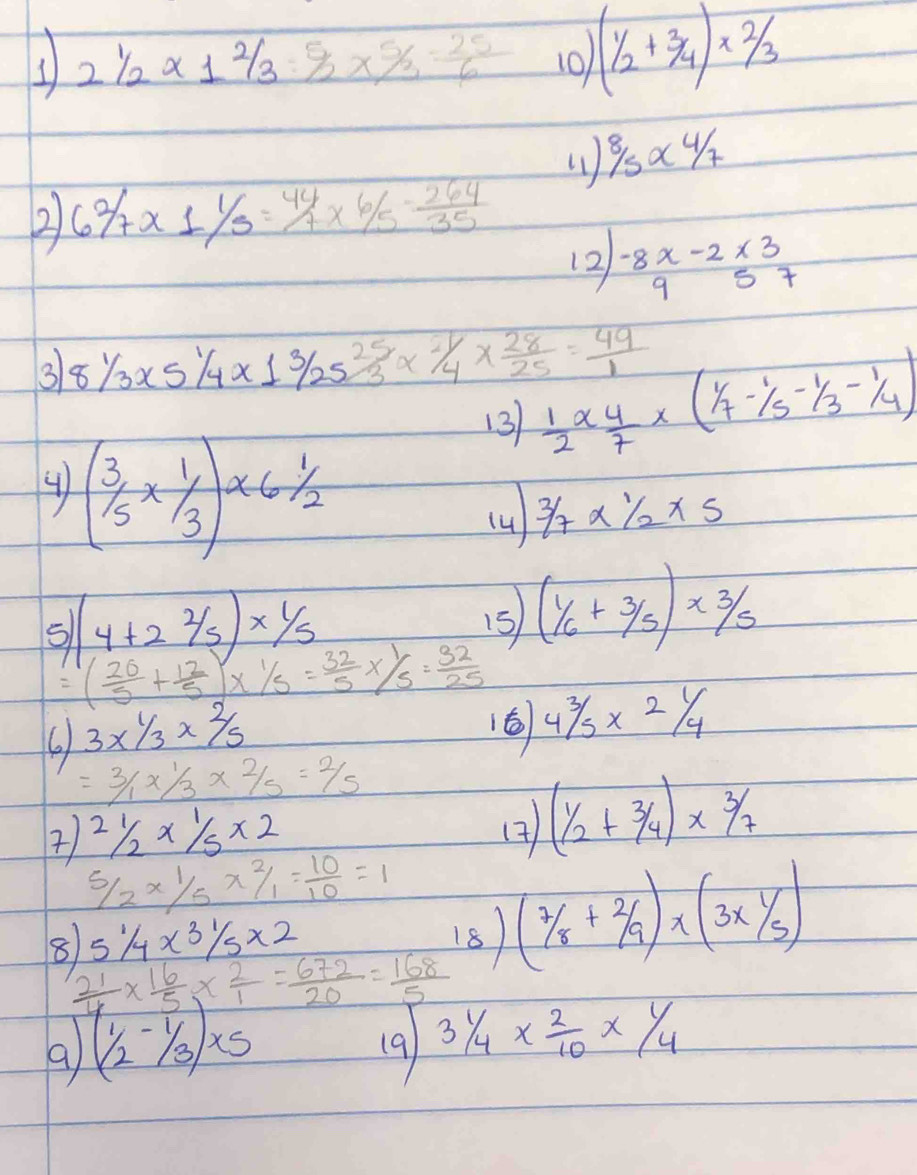 1) 2 1/2 x 1 2/3 = 5/2 x 5/3 = 25/6
2) 6 2/7 x 1 1/5 = 44/7 x 6/5 = 264/35
3) 8 1/3 x 5 1/4 x 1 3/25 25/3 x 21/4 x 28/25 = 49/1
4) (3/5 x 1/3) x 6 1/2
5) (4 + 2 2/5) x 1/5
= (20/5 + 12/5) x 1/5 = 32/5 x 1/5 = 32/25
6) 3 x 1/3 x 2/5
= 3/1 x 1/3 x 2/5 = 2/5
7) 2 1/2 x 1/5 x 2
5/2 x 1/5 x 2/1 = 10/10 = 1
8) 5 1/4 x 3 1/5 x 2
21/4 x 16/5 x 2/1 = 672/20 = 168/5
9) (1/2 - 1/3) x 5
10) (1/2 + 3/4) x 2/3
11) 8/5 x 4/7
12) -8/9 x -2/5 x 3/7
13) 1/2 x 4/7 x (1/7 - 1/5 - 1/3 - 1/4)
14) 3/7 x 1/2 x 5
15) (1/6 + 3/5) x 3/5
16) 4 3/5 x 2 1/4
17) (1/2 + 3/4) x 3/7
18) (7/8 + 2/9) x (3 x 1/5)
19) 3 1/4 x 2/10 x 1/4